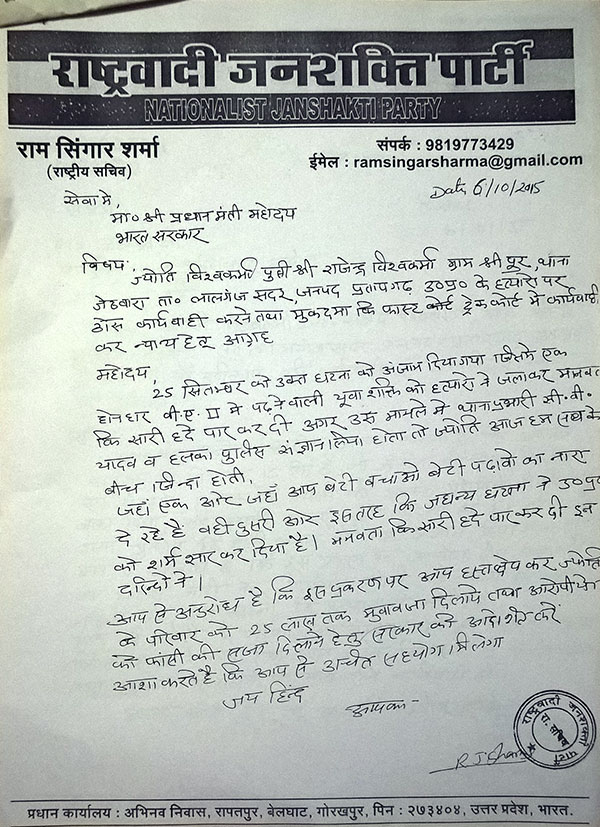 राष्ट्रवादी जनशक्ति पार्टी
NATIONALIST JANSHAKTI PARTY
राम सिंगार शर्मा
(राष्ट्रीय सचिव)
संपर्क : 9819773429
ईमेल : ramsingarsharma@gmail.com
Date 6/10/2015
सेवा मे,
मा० श्री प्रधान मंत्री महोदय
भारत सरकार
विषय: ज्योति विश्वकर्मा पुत्री श्री राजेन्द्र विश्वकर्मा ग्राम श्रीपुर, थाना
जेठवारा ता० लालगंज सदर, जनपद प्रतापगढ़ उ०प्र० के हत्यारो पर
ठोस कार्यवाही करने तथा मुकदमा कि फास्ट कोर्ट ट्रेक कोर्ट मे कार्यवाही
कर न्याय हेतु आग्रह
महोदय,
25 सितम्बर को उक्त घटना को अंजाम दिया गया जिसमे एक
होनहार बी.ए. II मे पढ़ने वाली युवा शक्ति को हत्यारो ने जलाकर मानवता
कि सारी हदे पार कर दी अगर उस मामले मे थाना प्रभारी सी.बी.
यादव व हलका पुलिस संज्ञान लिया होता तो ज्योति आज हम सब के
बीच जिन्दा होती.
जहाँ एक ओर जहाँ आप बेटी बचाओ बेटी पढ़ावो का नारा
दे रहे हैं वही दुसरी ओर इस तरह कि जघन्य घटना ने उ०प्र०
को शर्म सार कर दिया है। मानवता कि सारी हदे पार कर दी इन
दरिन्दो ने।
आप से अनुरोध है कि इस प्रकरण पर आप हस्तक्षेप कर ज्योति
के परिवार को 25 लाख तक मुवावजा दिलाये तथा आरोपीयो
को फांसी की सजा दिलाने हेतु सरकार को आदेशित करें
आशा करते है कि आप से उचीत सहयोग मिलेगा
जय हिन्द
आपका-
R J Sharma
राष्ट्रवादी जनशक्ति पार्टी
रा. सचिव
प्रधान कार्यालय : अभिनव निवास, रापतपुर, बेलघाट, गोरखपुर, पिन : २७३४०४, उत्तर प्रदेश, भारत.